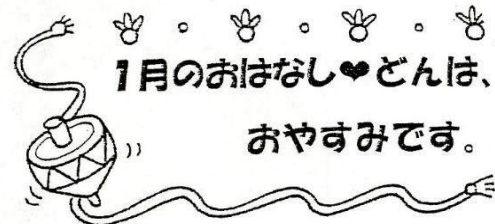 1月のおはなし♥どんは、
おやすみです。